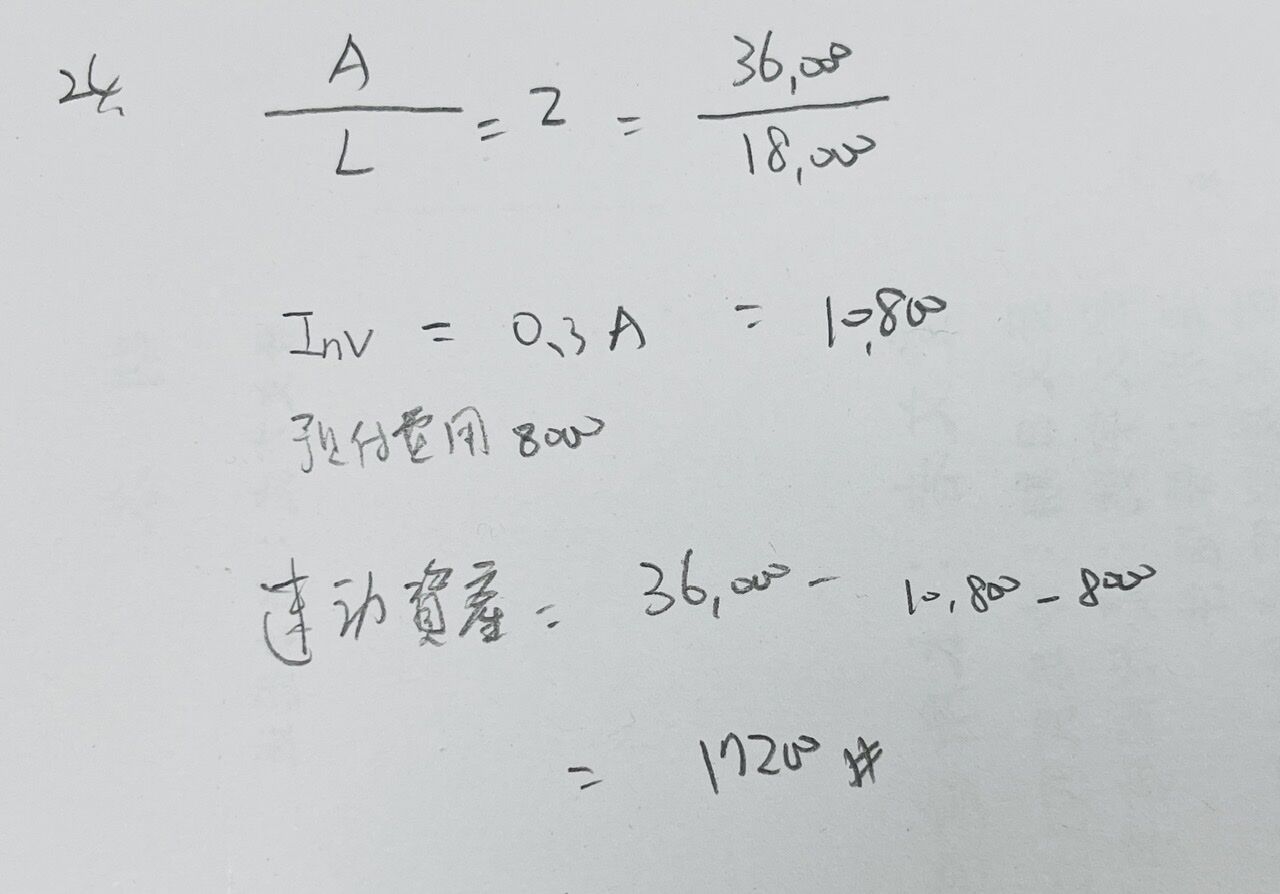 24.
A / L = 2 = 36,000 / 18,000
Inv = 0.3A = 10,800
預付費用 8000
速动資產 = 36,000 - 10,800 - 8000
= 17200 #